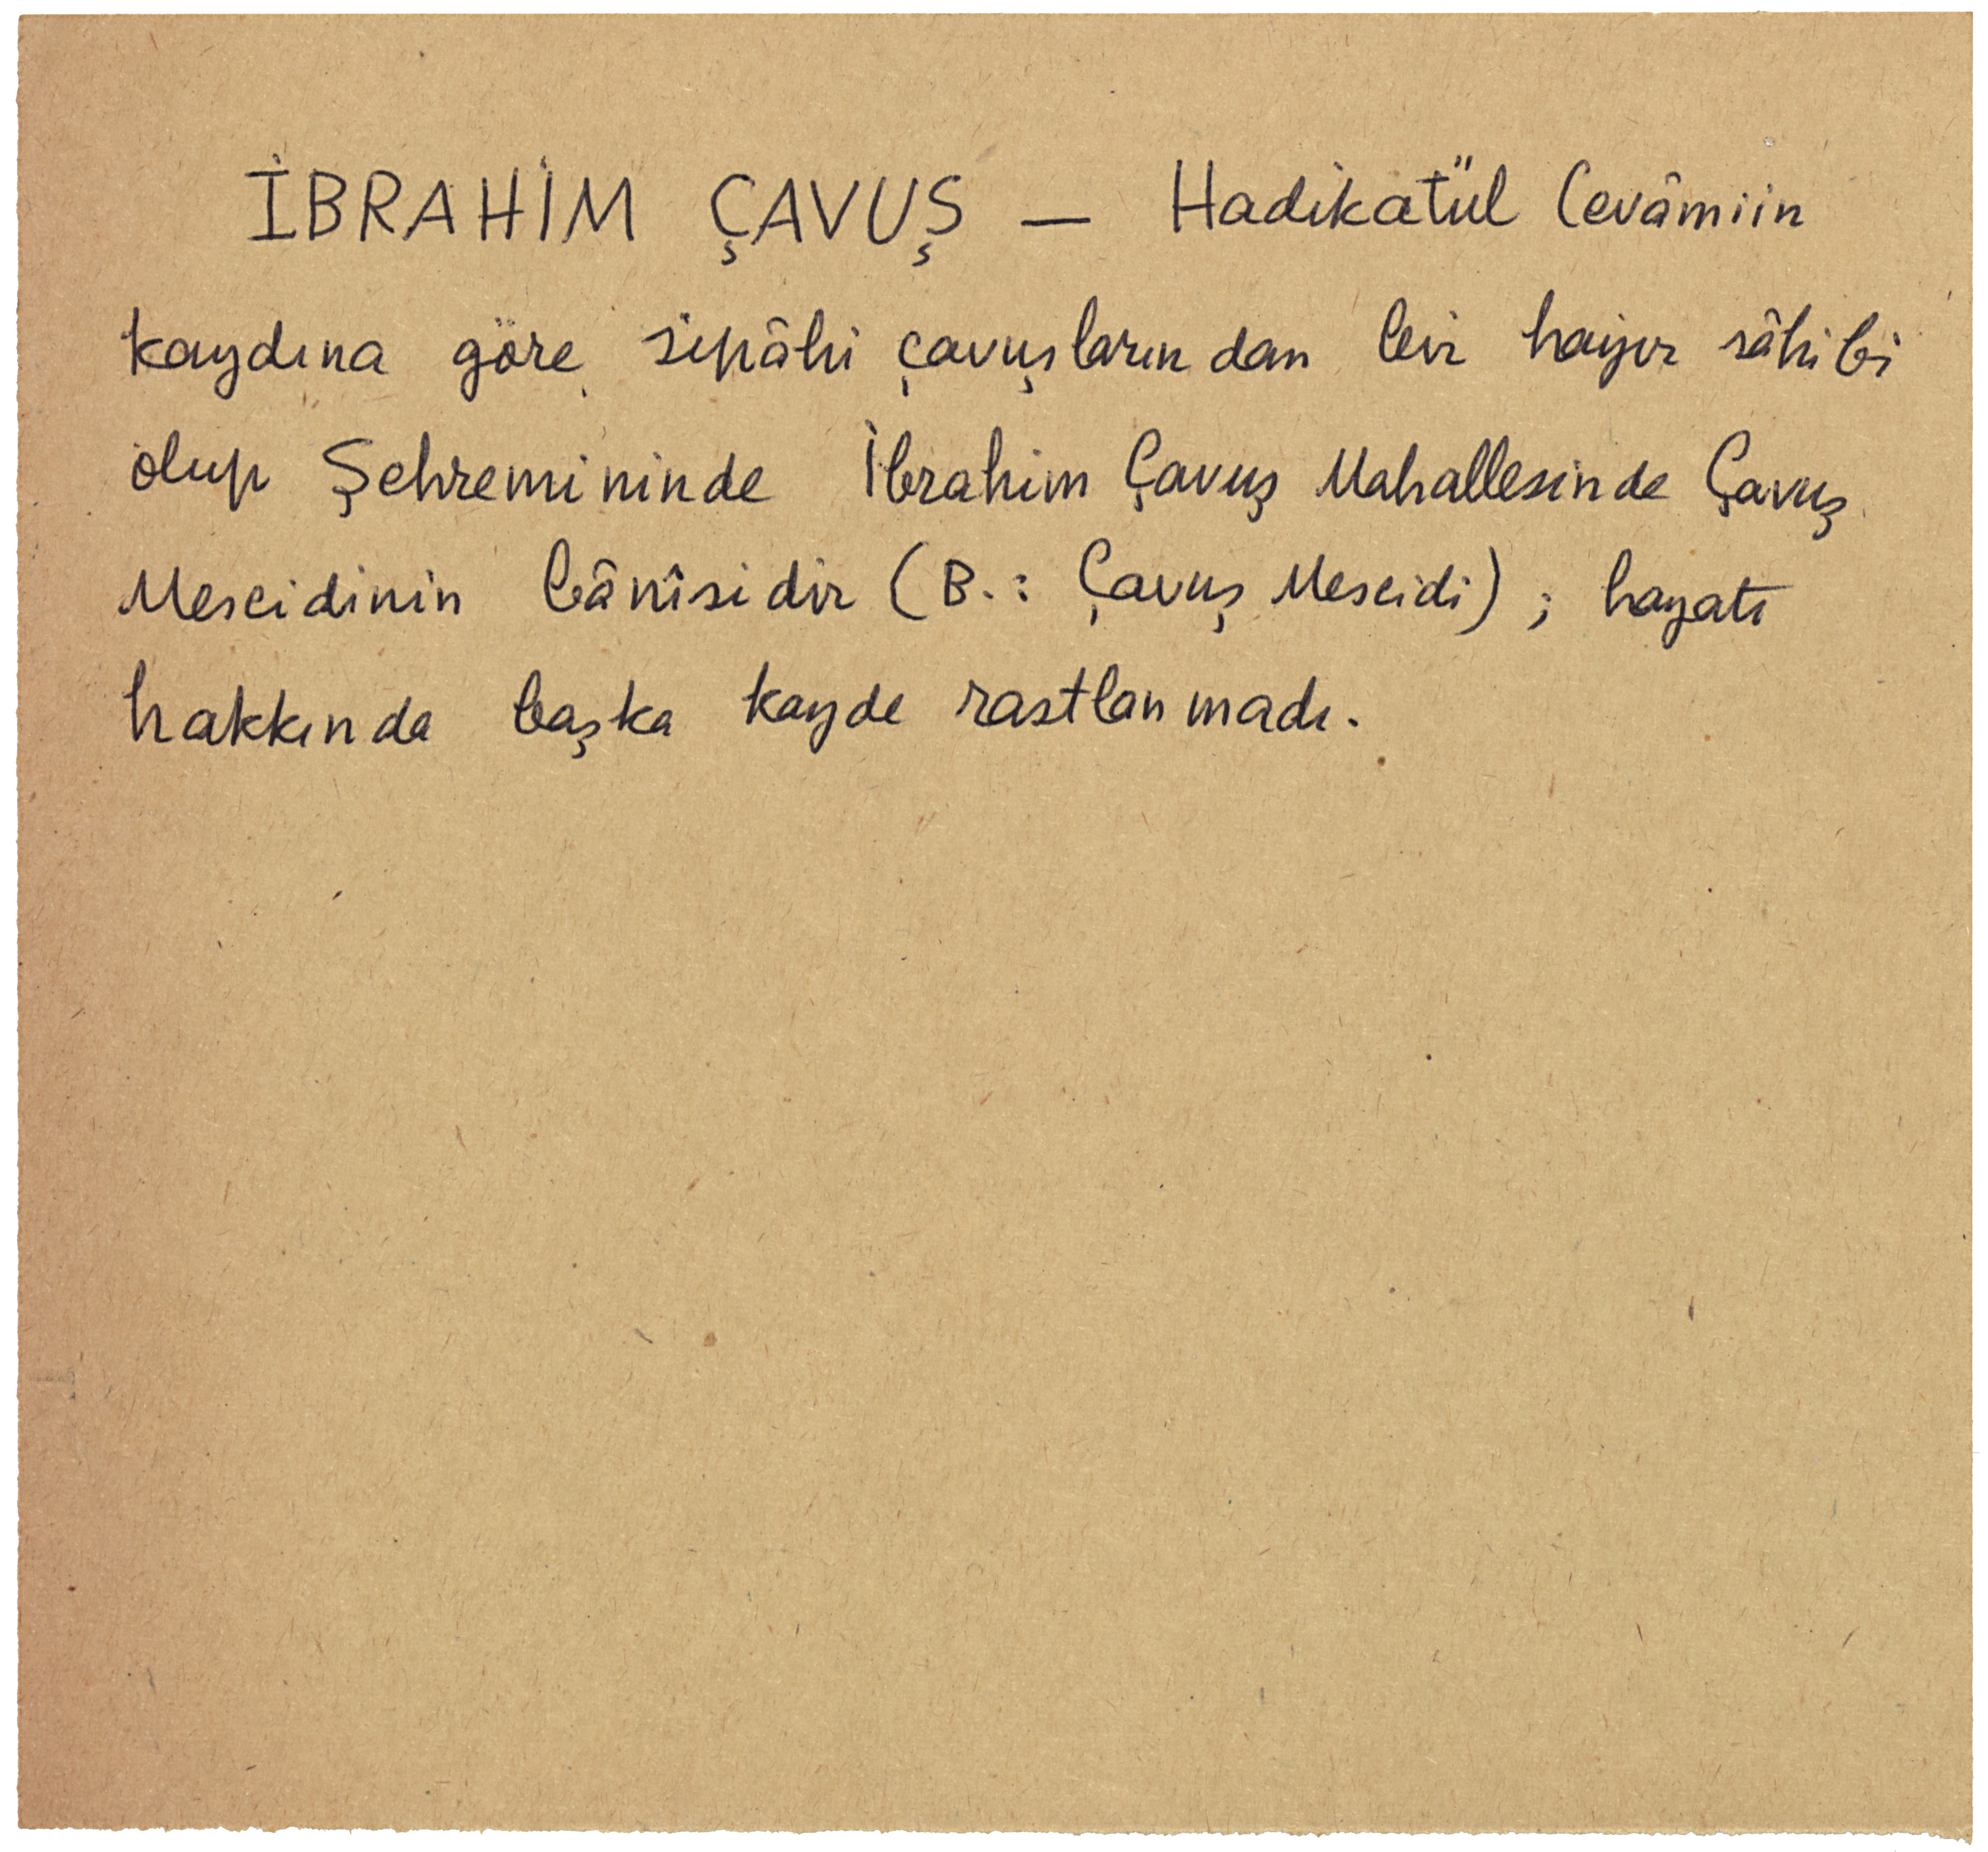 İBRAHİM ÇAVUŞ — Hadikatül Cevâmiin
kaydına göre sipâhi çavuşlarından bir hayır sâhibi
olup Şehremininde İbrahim Çavuş Mahallesinde Çavuş
Mescidinin bânîsidir (B.: Çavuş Mescidi) ; hayatı
hakkında başka kayde rastlanmadı.